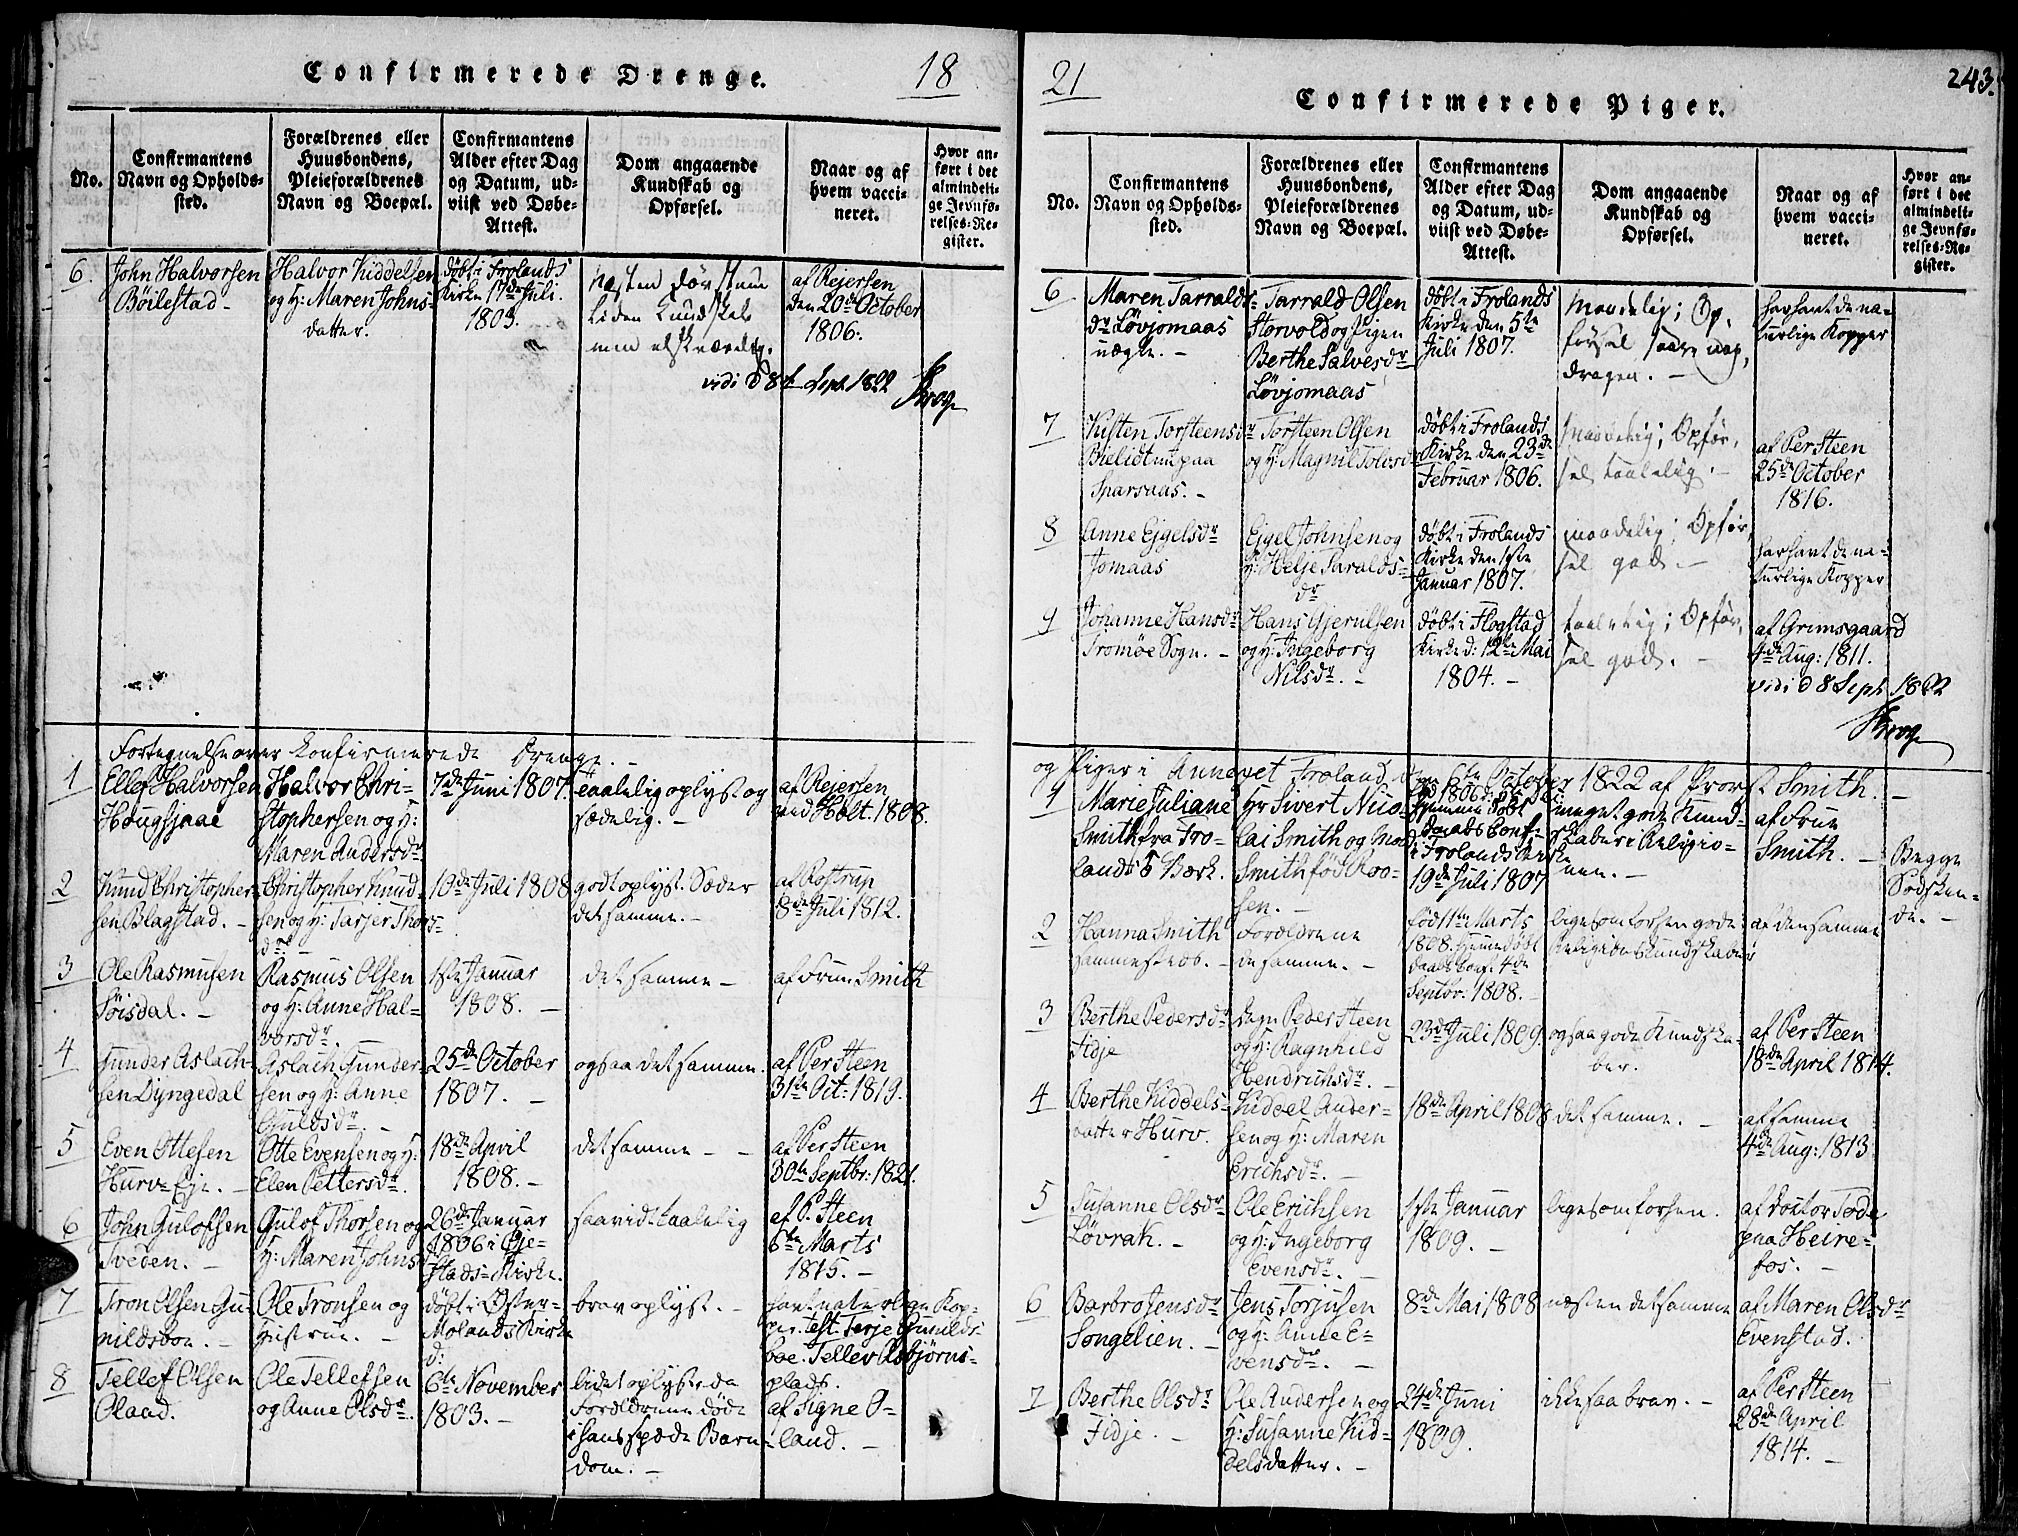 Confirmerede Drenge.
18
No.
Confirmantens
Navn og Opholds-
sted.
Forældrenes eller
Huusbondens,
Pleieforældrenes
Navn og Boepæl.
Confirmantens
Alder efter Dag
og Datum, ud-
viist ved Døbe-
Attest.
Dom angaaende
Kundskab og
Opførsel.
Naar og af
hvem vacci-
neret.
Hvor an-
ført i det
almindeli-
ge Jevnfø-
relses-Re-
gister.
6.
John Halvorsen
Böilestad -
Halvor Kiddelsen
og H: Maren Johns-
datter.
döbt i Frolands
Kirke 17de Juli.
1803.
næsten døvstum
liden Kundskab
men elskværdig.
af Rejersen
den 20de October
1806.
vidi d 8t Sept. 1822
Krog
Fortegnelse over Confirmerede Drenge. -
1
Ellef Halvorsen
Hougsjaae
Halvor Chri-
stophersen og H:
Maren Andersdr
7de Juni 1807.
taalelig oplyst og
sædelig. -
af Rejersen
ved Holt. 1808.
2
Knud Christopher-
sen Blagstad. -
Christopher Knud-
sen og H: Tarjer Thors-
dr. -
10de Juli 1808
godt oplyst. Sæder
det samme. -
af Rostrup
8de Juli 1812.
3
Ole Rasmusen
Söisdal. -
Rasmus Olsen
og H: Anne Hal-
vorsdr. -
1ste Januar
1808. -
det samme -
af Frue Smith
4
Gunder Aslach-
sen Dyngedal
Aslach Gunder-
sen og H: Anne
Guldsdr. -
25de October
1807. -
ogsaa det samme.
af Per Steen
31te Oct: 1819.
5
Even Ottesen
Hurv-Eje. -
Otte Evensen og H:
Elen Pettersdr.
18de April
1808. -
det samme - -
af Per Steen
30te Septbr: 1821.
6
John Gulofsen
Sveden. -
Gulof Thorsen og
H: Maren Johns
26de Januar
1806 i Øje-
stads-Kirke.
saavidt taalelig
af P. Steen
6te Marts
1815. -
7
Tron Olsen Gu-
nildsboe. -
Ole Tronsen og
Hustrue. -
döbt i Øster-
Molands Kirke
d:
brav oplyst. -
havt naturlige Kop-
per. test. Terje Gunilds-
boe. Tellev Asbjørns-
plads.
8
Tellef Olsen
Olaad.
Ole Tellefsen
og Anne Olsdr.
6te November
1803. -
lidet oplyst, da
Forældrene døde
i hans spæde Barn-
dom. -
af Signe O-
land. -
21
243.
Confirmerede Piger.
No.
Confirmantens
Navn og Opholds-
sted.
Forældrenes eller
Huusbondens,
Pleieforældrenes
Navn og Boepæl.
Confirmantens
Alder efter Dag
og Datum, ud-
viist ved Døbe-
Attest.
Dom angaaende
Kundskab og
Opførsel.
Naar og af
hvem vacci-
neret.
Hvor an-
ført i det
almindeli-
ge Jevnfø-
relses-Re-
gister.
6
Maren Tarralds-
dr Løvjomaas
uægte. -
Tarrald Olsen
Storvold og Pigen
Berthe Salvesdr
Løvjomaas
döbt i Frolands
Kirke den 5te
Juli 1807.
Maadelig; Op-
førsel
dragen. -
har havt de na-
turlige Kopper
7
Kisten Torsteensdr
Bielidt nu paa
Sparsaas. -
Torsteen Olsen
og H: Magnil Tolvsdr
döbt i Frolands
Kirke den 23de
Februar 1806.
maadelig; Opfør-
sel taalelig. -
af Per Steen
25de October
1816.
8
Anne Ejgelsdr
Jomaas
Ejgel Johnsen og
H: Helje Taralds-
dr
döbt i Frolands
Kirke den 1ste
Januar 1807.
maadelig; Opfør-
sel god. -
har havt de na-
turlige Kopper
9
Johanne Hansdr
Tromøe Sogn. -
Hans Gjerulsen
og H: Ingeborg
Nilsdr. -
döbt i Flogstad
Kirke d: 12te Mai
1804. -
taalelig; Opfør-
sel god. -
af Grimsgaard
4de Aug: 1811.
vidi d 8 Sept 1822
Krog
og Piger i Annexet Froland, den 6te October 1822 af Provst Smith. -
1
Marie Juliane
Smith fra Fro-
lands Værk.
Hr Sivert Nico-
lai Smith og Mad.
Smith fød Roo-
sen. -
Hjemme døbt
Daabs Conf-
i Frolands Kirke
19de Juli 1807
meget gode Kund-
skaber i Religio-
nen. -
af Frue
Smith. -
Begge
Sødsken-
de. -
2
Hanna Smith
sammesteds. -
Forældrene
de samme. -
född 1te Marts
1808. Hjemmedöbt
Daabs Conf. 4de
Septbr: 1808. -
ligesom forhen gode
Religions Kundskaber
af den samme
3
Berthe Pedersdr
Fidje
Peder Steen
og H: Ragnhild
Hendrichsdr. -
23de Juli 1809.
ogsaa gode Kundska-
ber.
af Per Steen
18de April 1814.
4
Berthe Kiddels-
datter Hurv.
Kiddel Ander-
sen og H: Maren
Erichsdr. -
18de April 1808
det samme. -
af samme
4de Aug: 1813
5
Susanne Olsdr
Løvrak. -
Ole Erichsen
og H: Ingeborg
Evensdr. -
1ste Januar
1809. -
ligesom forhen.
af Doctor Tode
paa Heire-
fos. -
6
Barbro Jensdr
Songelien. -
Jens Torjusen
og H: Anne E-
vensdr. -
8de Mai 1808
næsten det samme
af Maren Olsdr
Evenstad.
7
Berthe Olsdr
Fidje. -
Ole Andersen og
H: Susanne Kid-
delsdatter. -
24de Juni
1809.
ikke saa brav. -
af Per Steen
28de April
1814. -